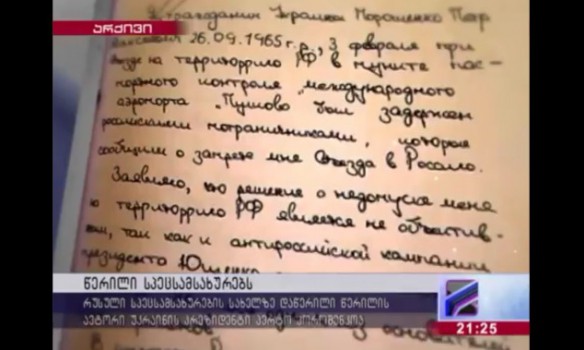 არქივი
Я гражданин Украины Порошенко Петр
26.09.1965 г.р., 3 февраля при
на территоррию РФ в пункте пас-
портного контроля „международного
аэропорта „Пулково был задержан
российскими пограничниками, которые
сообщили о запрете мне въезда в Россию.
Заявляю, что решение о недопуске меня
на территоррию РФ является не объектив-
ным, так как и антироссийской кампании
президента Ющенко
წერილი სპეცსამსახურებს
რუსული სპეცსამსახურების სახელზე დაწერილი წერილის
ავტორი უკრაინის პრეზიდენტი პეტრო პოროშენკოა
21:25